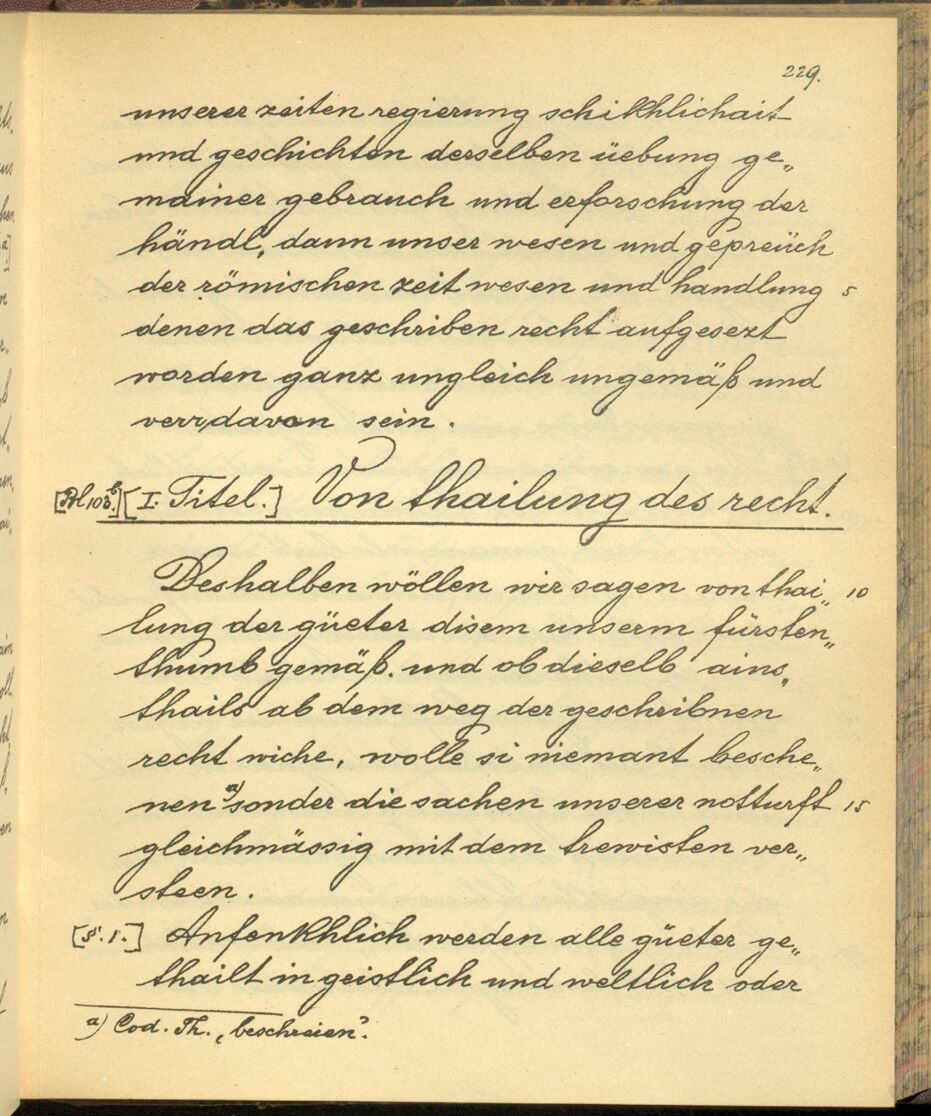 229.
unserer zeiten regierung schikhlichait
und geschichten derselben üebung ge„
mainer gebrauch und erforschung der
händl, dann unser wesen und gepreüch
der römischen zeit wesen und handlung 5
denen das geschriben recht aufgesezt
worden ganz ungleich ungemäß und
verr davon sein.
[Bl 103.b] [I. Titel.] Von thailung des recht.
Deshalben wöllen wir sagen von thai„ 10
lung der güeter disem unserm fürsten„
thumb gemäß. und ob dieselb ains„
thails ab dem weg der geschribnen
recht wiche, wolle si niemant besche„
nen a) sonder die sachen unserer notturft 15
gleichmässig mit dem trewisten ver„
steen.
[§. 1.] Anfenkhlich werden alle güeter ge„
thailt in geistlich und weltlich oder
a) Cod. Th. „beschreien".